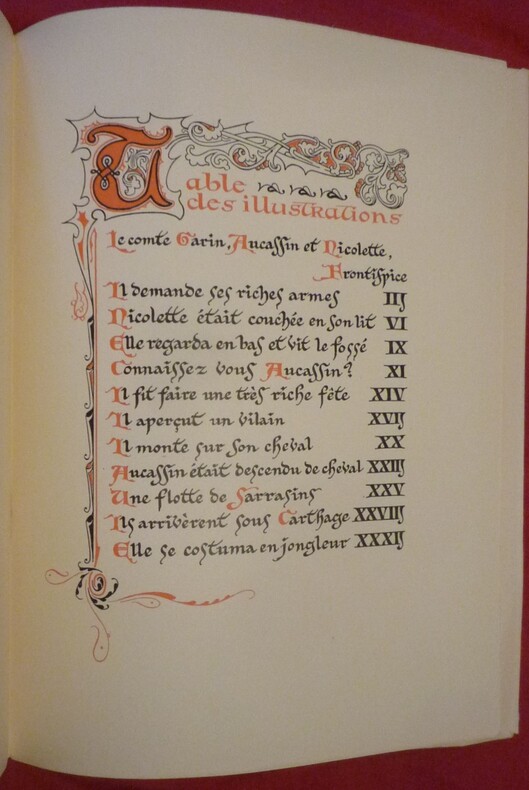 Table
des illustrations
Le comte Garin, Aucassin et Nicolette,
Frontispice
Il demande ses riches armes IIJ
Nicolette était couchée en son lit VI
Elle regarda en bas et vit le fossé IX
Connaissez vous Aucassin? XI
Il fit faire une très riche fête XIV
Il aperçut un vilain XVIJ
Il monte sur son cheval XX
Aucassin était descendu de cheval XXIIJ
Une flotte de Sarrasins XXV
Ils arrivèrent sous Carthage XXVIIJ
Elle se costuma en jongleur XXXIJ